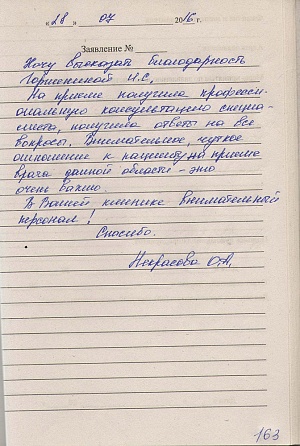 « 28 » 07 2016 г.
Заявление №
Хочу высказать благодарность
Горшениной И.С.
На приеме получила професси-
ональную консультацию специа-
листа, получила ответы на все
вопросы. Внимательное, чуткое
отношение к пациенту на приеме
врача данной области - это
очень важно.
В Вашей клинике внимательный
персонал!
Спасибо.
Некрасова О.А.
163